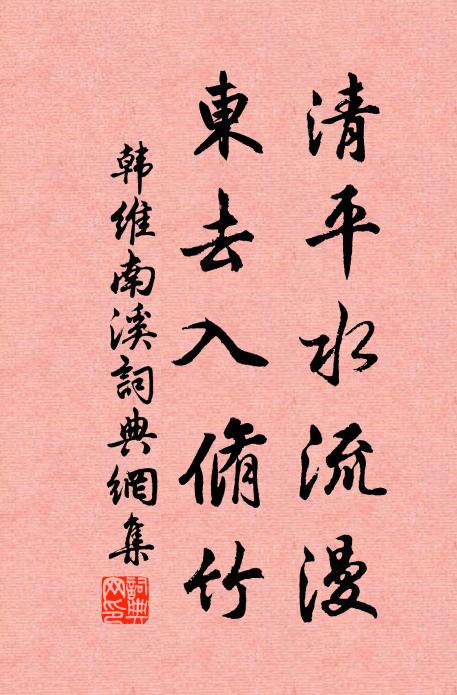 清平水流漫
東去入脩竹
韩維南溪詞典網集
詞典網印